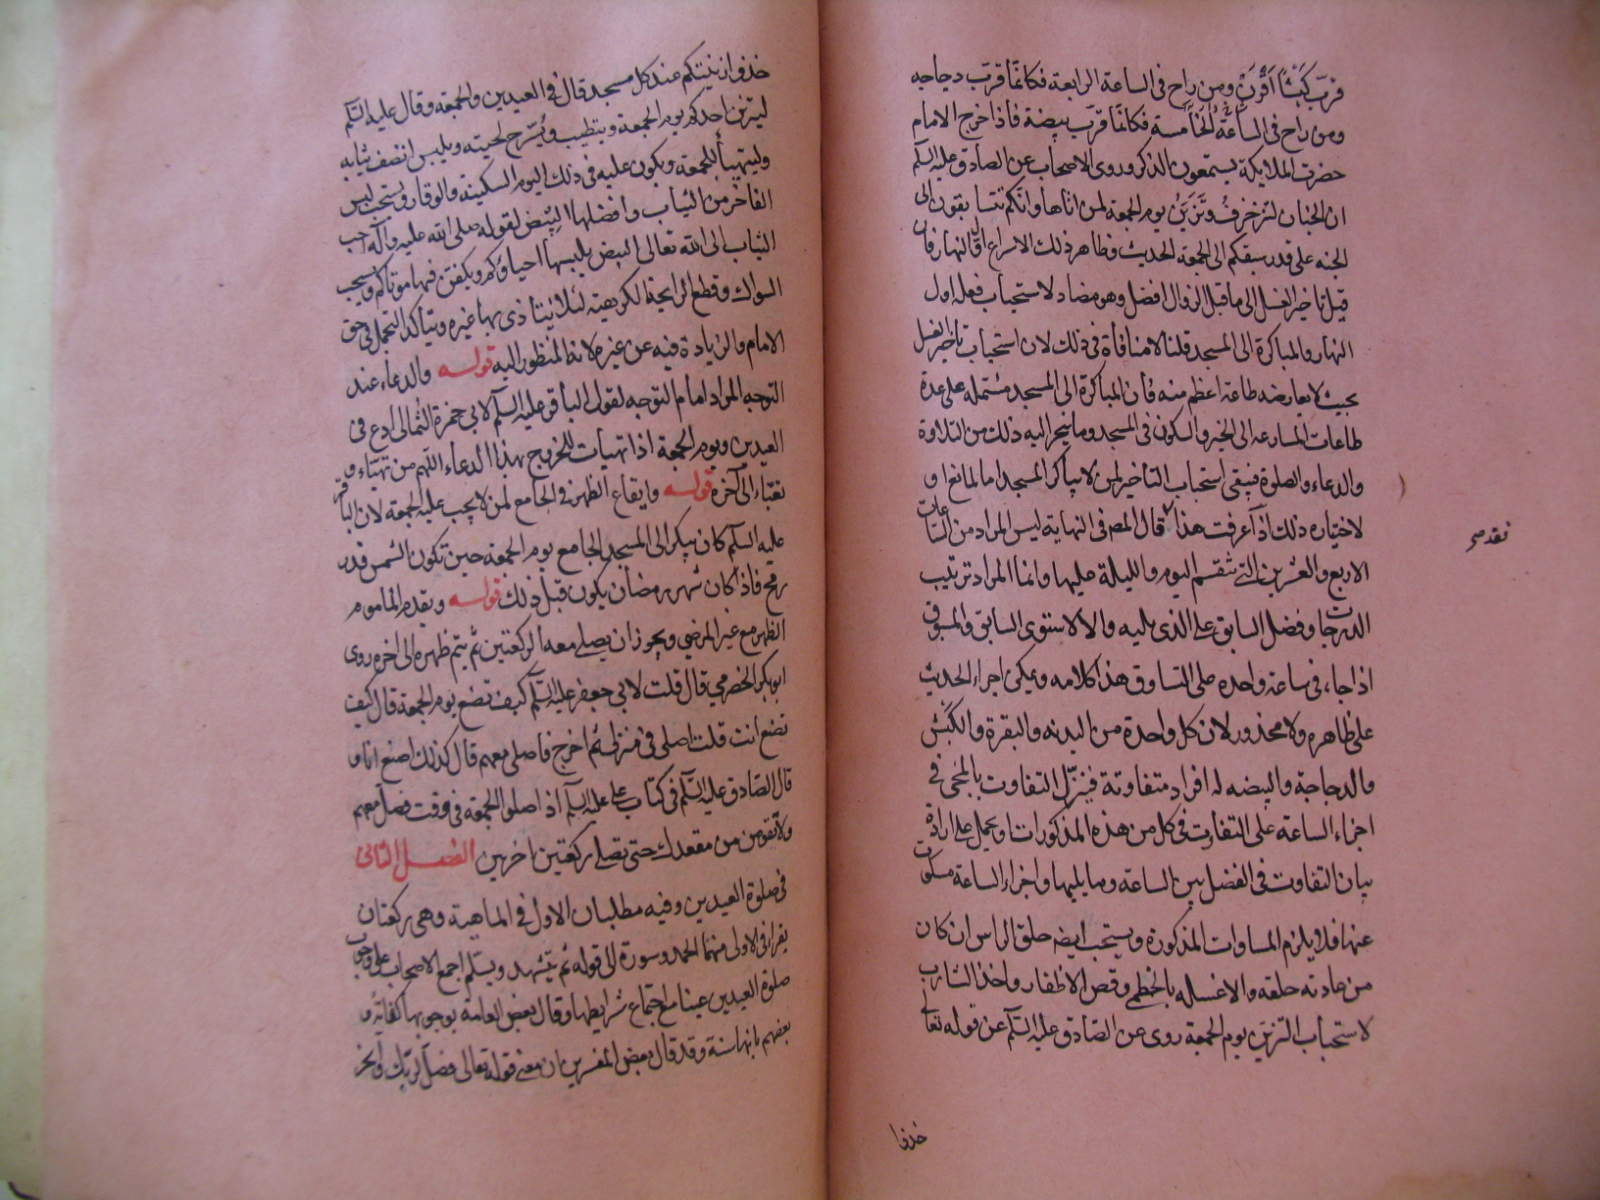 قرب كبشا اقرن ومن راح فى الساعة الرابعة فكانما قرب دجاجه
ومن راح فى الساعة الخامسة فكانما قرب بيضة فاذا خرج الامام
حضرت الملايكة يستمعون الذكر وروى الاصحاب عن الصادق عليه السلم
ان الجنان لتزخرف وتزين يوم الجمعة لمن اتاها وانكم تتسابقون الى
الجنه على قدر سبقكم الى الجمعة الحديث وظاهر ذلك الاسراع اول النهار فان
قيل تاخير الغسل الى ما قبل الزوال افضل وهو مضاد لاستحباب فعله اول
النهار والمباكرة الى المسجد قلنا لا منافاة فى ذلك لان استحباب تاخير الغسل
بحيث لا يعارضه طاعة اعظم منه فان المباكرة الى المسجد مشتمله على عدة
طاعات المسارعه الى الخير والكون فى المسجد وما ينجر اليه ذلك من التلاوة
والدعاء والصلوة فيبقى استحباب التأخير لمن لا يباكر المسجد اما لمانع او
لاختياره ذلك اذا عرفت هذا قال المص فى النهاية ليس المراد من الساعات
الاربع والعشرين التى تنقسم اليوم والليلة عليها وانما المراد ترتيب
الدرجات وفضل السابق على الذى يليه والا لاستوى السابق والمسبوق
اذا جاء فى ساعة واحده على التساوق هذا كلامه ويمكن اجراء الحديث
على ظاهره ولا محذور لان كل واحدة من البدنه والبقرة والكبش
والدجاجة والبيضه له افراد متفاوتة فينزل التفاوت بالمجى فى
اجزاء الساعة على التفاوت فى كل من هذه المذكورات ويحمل على ارادة
بيان التفاوت فى الفضل بين الساعة وما يليها واجزاء الساعة مسكوت
عنها فلا يلزم المساوات المذكورة ويستحب ايضه حلق الراس ان كان
من عادته حلقه والا غسله بالخطمى وقص الاظفار واخذ الشارب
لاستحباب التزين يوم الجمعة روى عن الصادق عليه السلم عن قوله تعالى
خذوا
خذوا زينتكم عند كل مسجد قال فى العيدين والجمعة وقال عليه السلم
ليتزين احدكم يوم الجمعة ويتطيب ويسرح لحيته ويلبس انضف ثيابه
وليتهيأ للجمعة ويكون عليه فى ذلك اليوم السكينة والوقار ويستحب لبس
الفاخر من الثياب وافضلها البيض لقوله صلى الله عليه وآله احب
الثياب الى الله تعالى البيض يلبسها احياؤكم ويكفن فيها موتاكم ويستحب
السواك وقطع الرايحة الكريهة لئلا يتأذى بها غيره ويتأكد التجمل فى حق
الامام والزيادة فيه عن غيره لانه المنظور اليه قولـه والدعاء عند
التوجه المراد امام التوجه لقول الباقر عليه السلم لابى حمزة الثمالى ادع فى
العيدين ويوم الجمعة اذا تهيأت للخروج بهذا الدعاء اللهم من تهيّاء و
تعبّاء الى آخره قولـه وايقاع الظهر فى الجامع لمن لا يجب عليه الجمعة لان الباقر
عليه السلم كان يبكر الى المسجد الجامع يوم الجمعة حين تكون الشمس قدر
رمح فاذا كان شهر رمضان يكون قبل ذلك قولـه ويقدم المأموم
الظهر مع غير المرضى ويجوز ان يصلى معه الركعتين ثم يتم ظهره الى اخره روى
ابو بكر الحضرمى قال قلت لابى جعفر عليه السلم كيف تصنع يوم الجمعة قال كيف
تصنع انت قلت اصلى فى منزلى ثم اخرج فاصلى معهم قال كذلك اصنع انا و
قال الصادق عليه السلم فى كتاب على عليه السلم اذا صلوا الجمعة فى وقت فصل معهم
ولا تقومن من مقعدك حتى تصلى ركعتين اخرين الفصل الثانى
فى صلوة العيدين وفيه مطلبان الاول فى الماهية وهى ركعتان
يقرا فى الاولى منهما الحمد وسورة الى قوله ثم يتشهد ويسلم اجمع الاصحاب على وجوب
صلوة العيدين عينا مع اجتماع شرايطها وقال بعض العامة بوجوبها كفائة و
بعضهم بانها سنة وقد قال بعض المفسرين ان معنى قوله تعالى فصل لربك وانحر